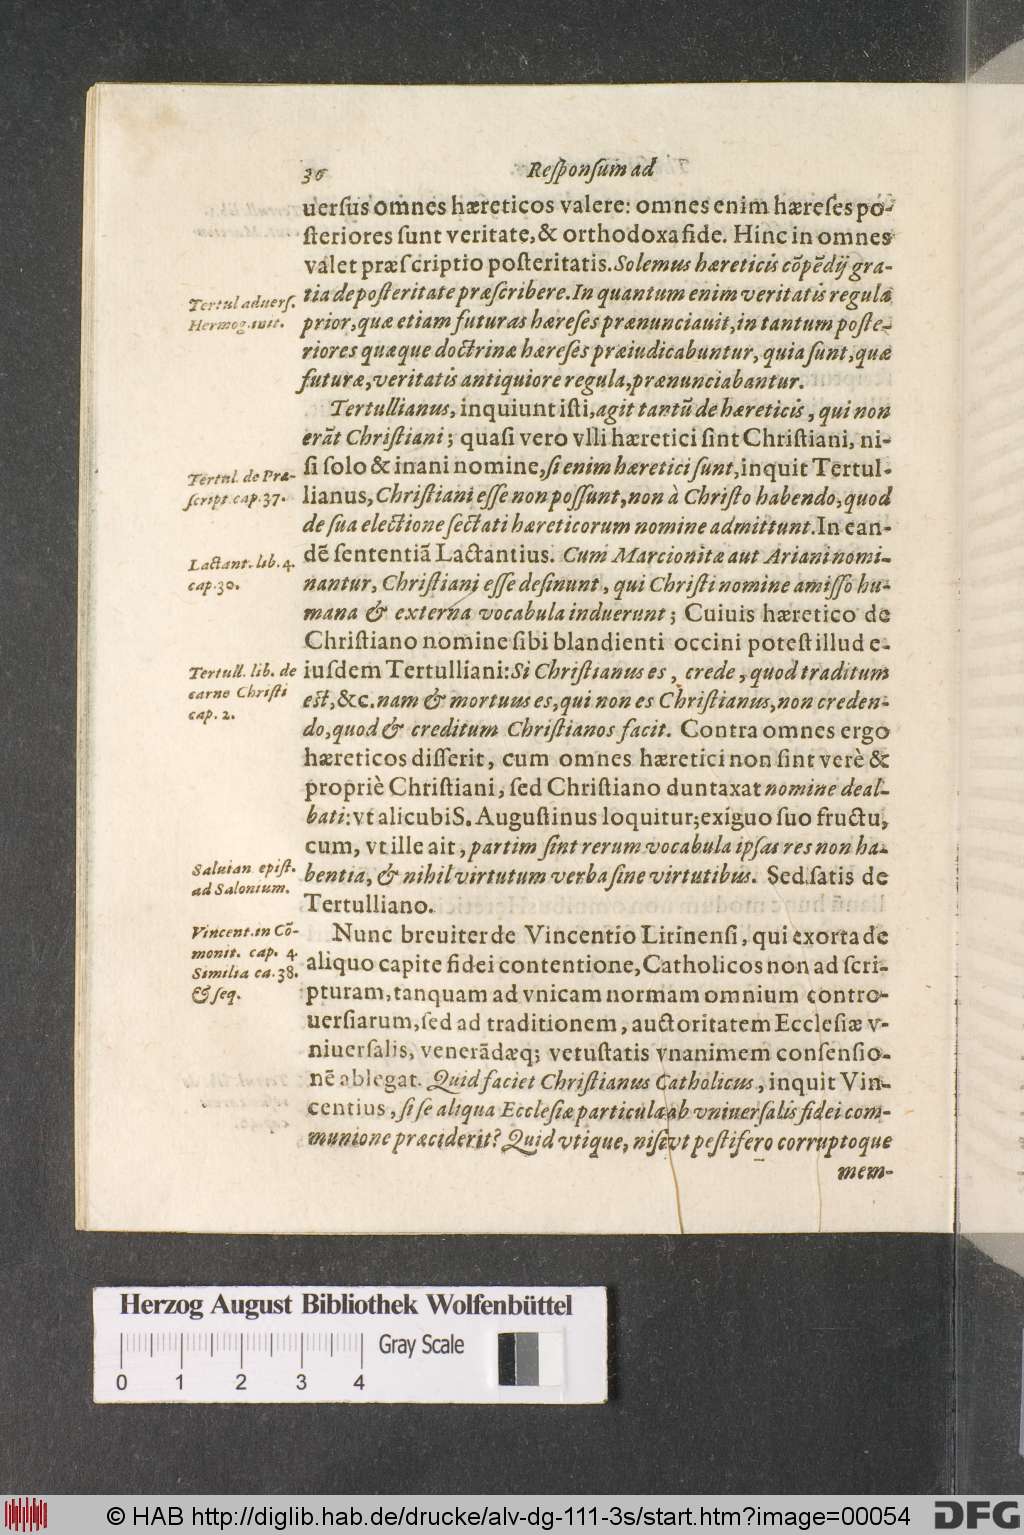 36 Reſponſum ad
uerſus omnes hæreticos valere: omnes enim hæreſes po-
ſteriores ſunt veritate, & orthodoxa fide. Hinc in omnes
valet præſcriptio poſteritatis. Solemus hæreticis cõpẽdij gra-
tia de poſteritate præſcribere. In quantum enim veritatis regula
prior, quæ etiam futuras hæreſes prænunciauit, in tantum poſte-
riores quæque doctrinæ hæreſes præiudicabuntur, quia ſunt, quæ
futuræ, veritatis antiquiore regula, prænunciabantur.
Tertul aduerſ.
Hermog. init.
Tertullianus, inquiunt iſti, agit tantũ de hæreticis, qui non
erãt Chriſtiani; quaſi vero vlli hæretici ſint Chriſtiani, ni-
ſi ſolo & inani nomine, ſi enim hæretici ſunt, inquit Tertul-
lianus, Chriſtiani eſſe non poſſunt, non à Chriſto habendo, quod
de ſua electione ſectati hæreticorum nomine admittunt. In ean-
dẽ ſententiã Lactantius. Cum Marcionitæ aut Ariani nomi-
nantur, Chriſtiani eſſe deſinunt, qui Chriſti nomine amiſſo hu-
mana & externa vocabula induerunt; Cuiuis hæretico de
Chriſtiano nomine ſibi blandienti occini poteſt illud e-
iuſdem Tertulliani: Si Chriſtianus es, crede, quod traditum
eſt, &c. nam & mortuus es, qui non es Chriſtianus, non creden-
do, quod & creditum Chriſtianos facit. Contra omnes ergo
hæreticos diſſerit, cum omnes hæretici non ſint verè &
propriè Chriſtiani, ſed Chriſtiano duntaxat nomine deal-
bati: vt alicubi S. Auguſtinus loquitur; exiguo ſuo fructu,
cum, vt ille ait, partim ſint rerum vocabula ipſas res non ha-
bentia, & nihil virtutum verba ſine virtutibus. Sed ſatis de
Tertulliano.
Tertul. de Præ-
ſcript cap. 37.
Lactant. lib. 4.
cap. 30.
Tertull. lib. de
carne Chriſti
cap. 2.
Saluian epiſt.
ad Salonium.
Nunc breuiter de Vincentio Lirinenſi, qui exorta de
aliquo capite fidei contentione, Catholicos non ad ſcri-
pturam, tanquam ad vnicam normam omnium contro-
uerſiarum, ſed ad traditionem, auctoritatem Eccleſiæ v-
niuerſalis, venerãdæq; vetuſtatis vnanimem conſenſio-
nẽ ablegat. Quid faciet Chriſtianus Catholicus, inquit Vin-
centius, ſi ſe aliqua Eccleſiæ particula ab vniuerſalis fidei com-
munione præciderit? Quid vtique, niſi vt peſtifero corruptoque
mem-
Vincent. in Cõ-
monit. cap. 4.
Similia ca. 38.
& ſeq.
Herzog August Bibliothek Wolfenbüttel
0 1 2 3 4 Gray Scale
© HAB http://diglib.hab.de/drucke/alv-dg-111-3s/start.htm?image=00054
DFG